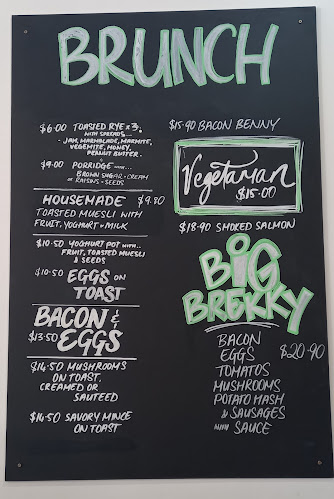 BRUNCH
$6.00 TOASTED RYE x 3.
WITH SPREADS...
JAM, MARMALADE, MARMITE,
VEGEMITE, HONEY,
PEANUT BUTTER.
$9.00 PORRIDGE WITH...
BROWN SUGAR + CREAM
OR RAISINS + SEEDS
HOUSEMADE $9.80
TOASTED MUESLI WITH
FRUIT, YOGHURT + MILK
$10.50 YOGHURT POT WITH..
FRUIT, TOASTED MUESLI
& SEEDS
$10.50 EGGS ON
TOAST
BACON &
$13.50 EGGS
$14.50 MUSHROOMS
ON TOAST.
CREAMED OR
SAUTEED
$16.50 SAVORY MINCE
ON TOAST
$15.90 BACON BENNY
Vegetarian
$15.00
$18.90 SMOKED SALMON
BIG
BREKKY
BACON
EGGS $20.90
TOMATOS
MUSHROOMS
POTATO HASH
& SAUSAGES
WITH SAUCE